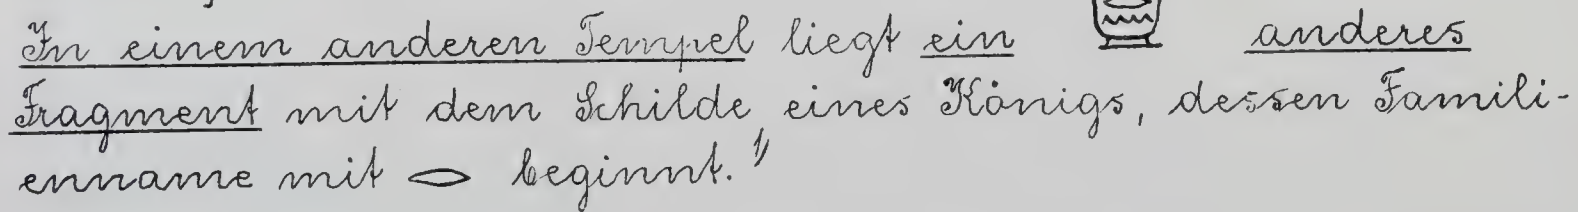 In einem anderen Tempel liegt ein anderes
Fragment mit dem Schilde eines Königs, dessen Famili-
enname mit 𓂋 beginnt. 1)